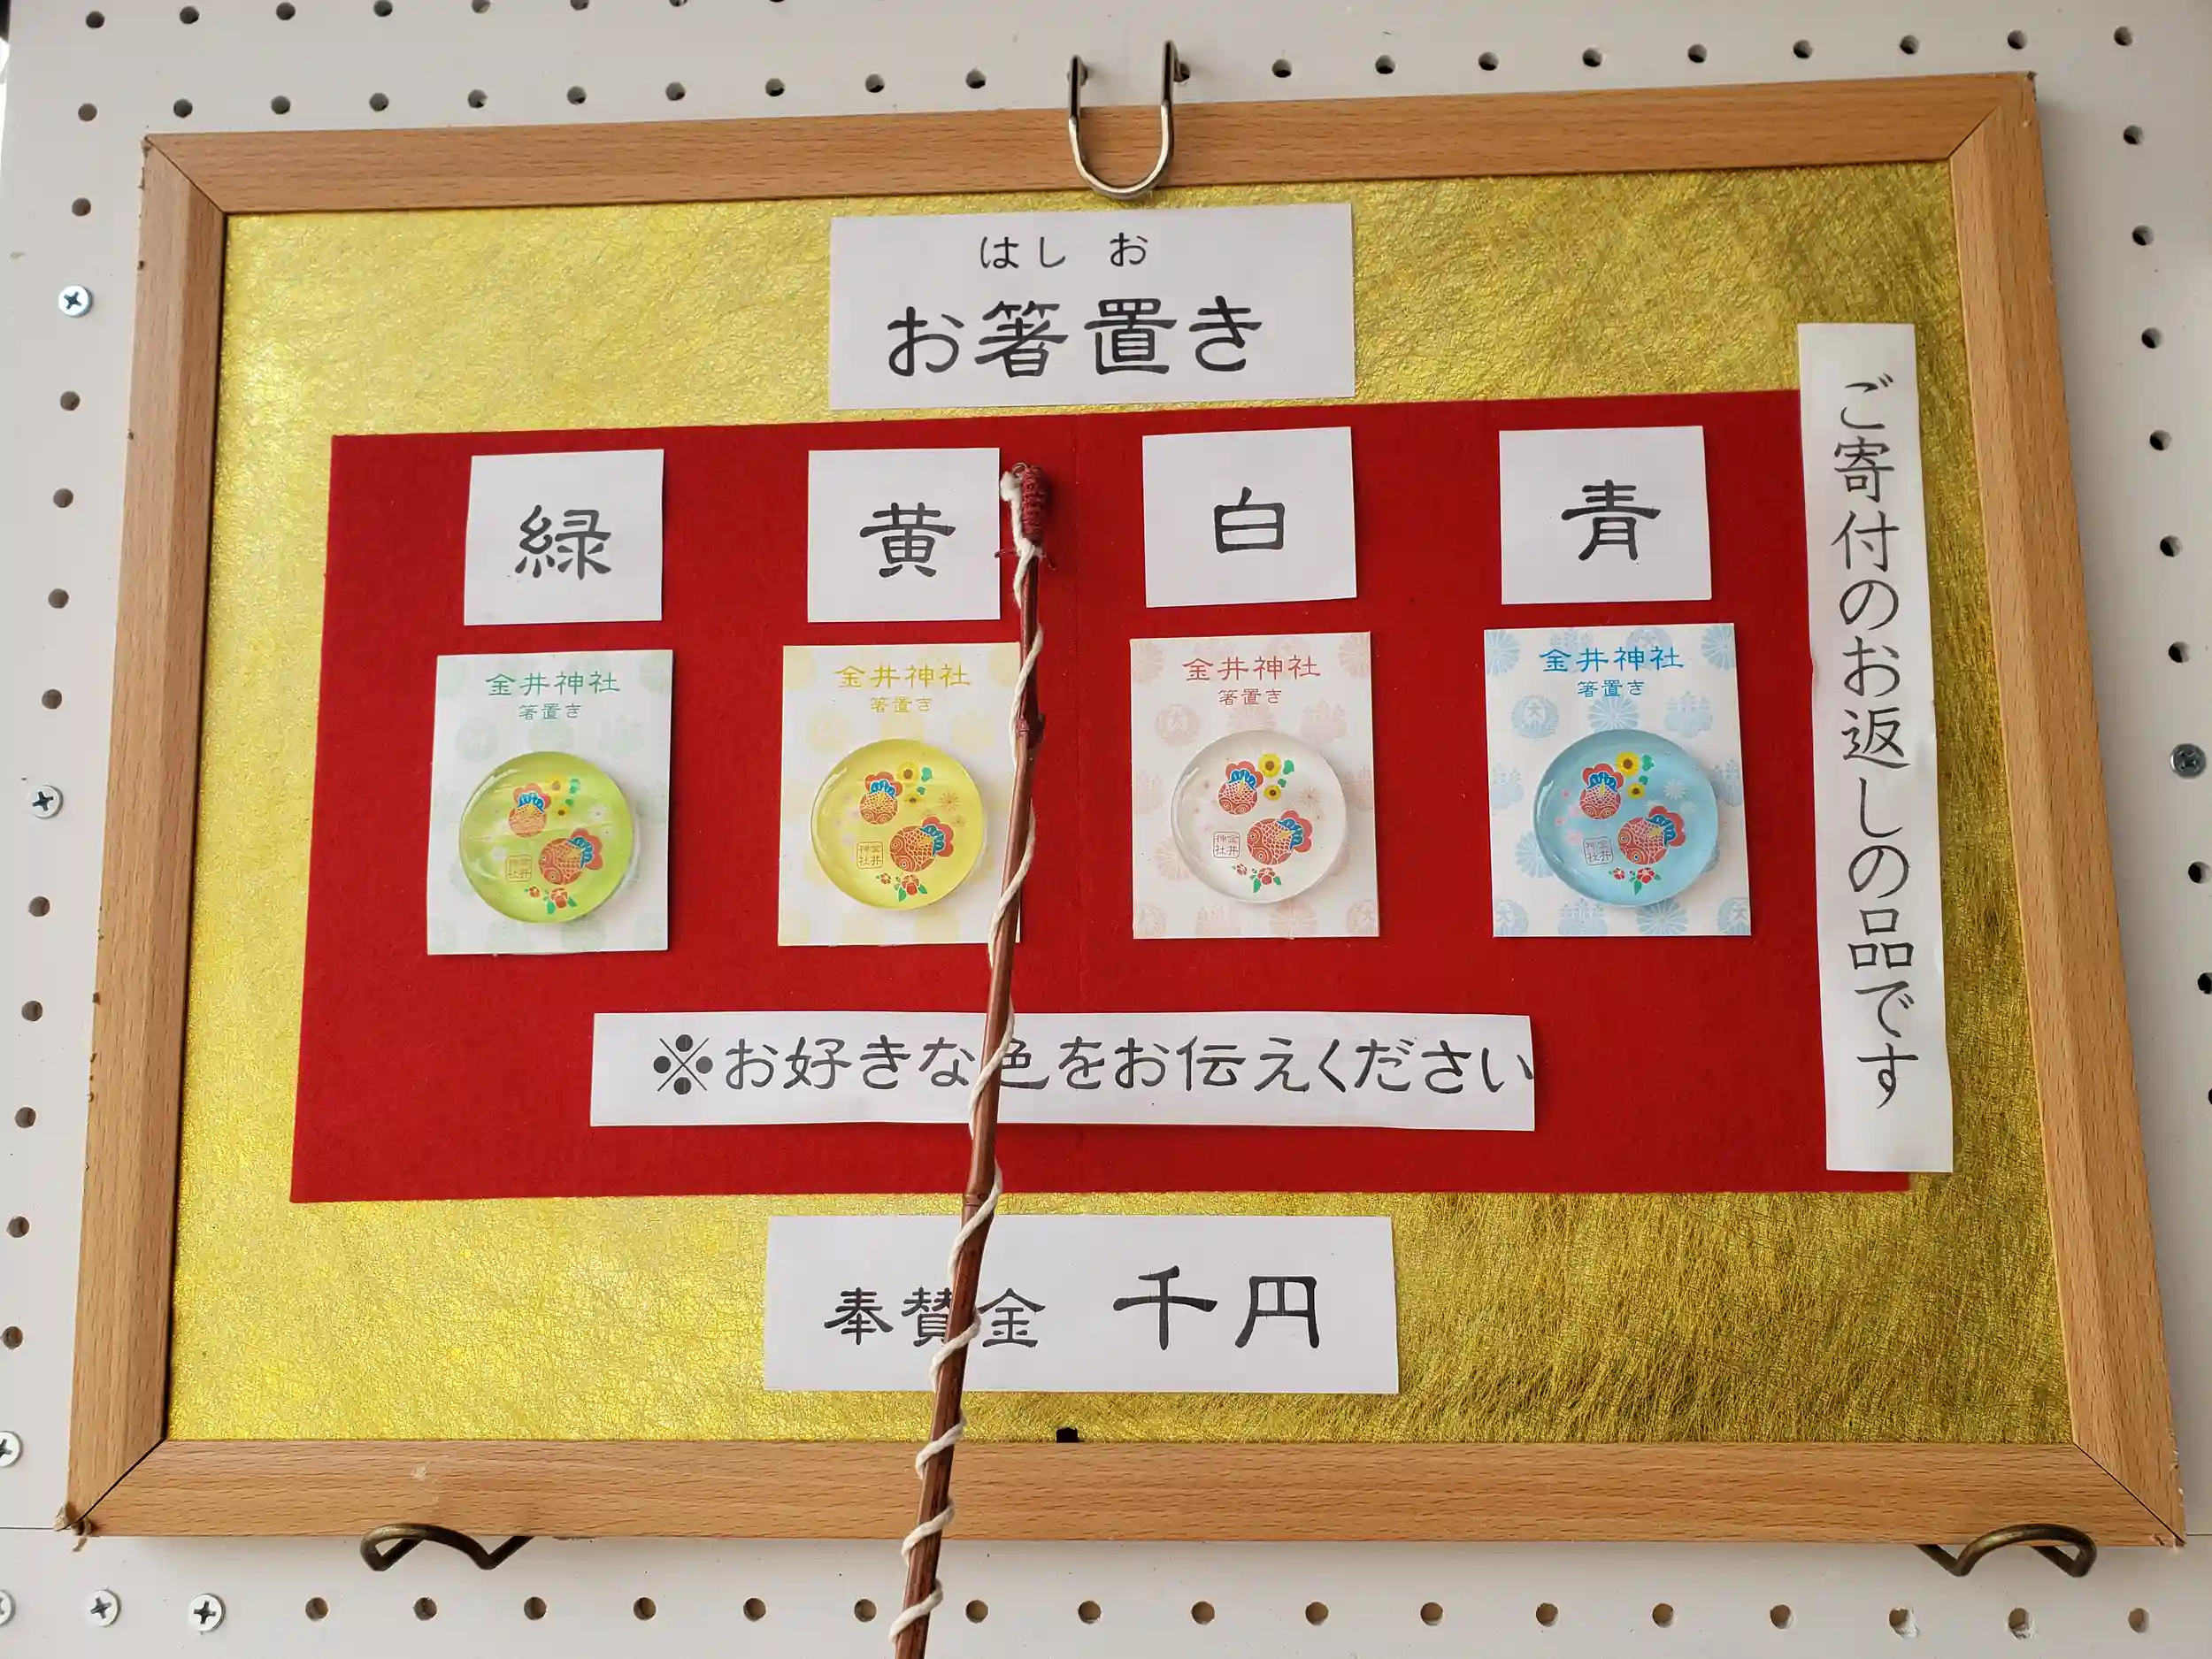 はし お
お箸置き
緑
黄
白
青
金井神社
箸置き
金井神社
金井神社
箸置き
金井神社
金井神社
箸置き
金井神社
金井神社
箸置き
金井神社
※お好きな色をお伝えください
奉賛金 千円
ご寄付のお返しの品です